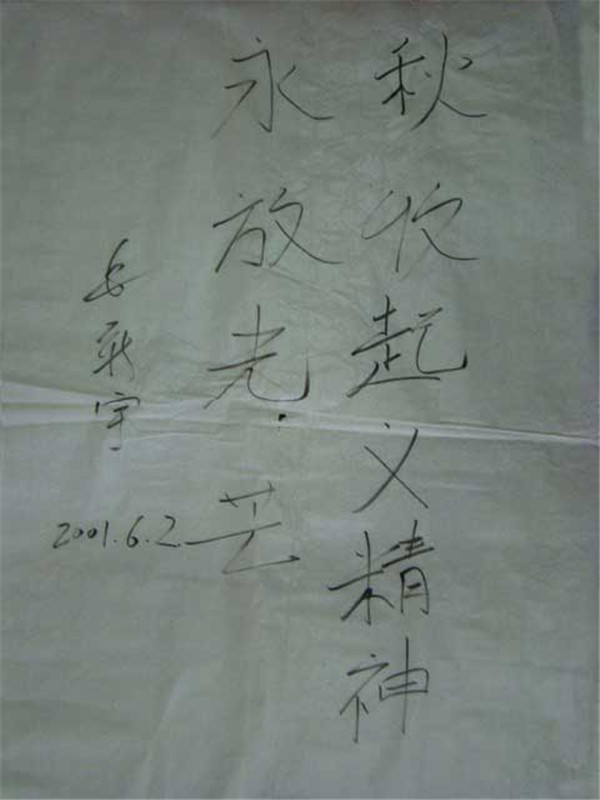 秋收起义精神
永放光芒
2001.6.2